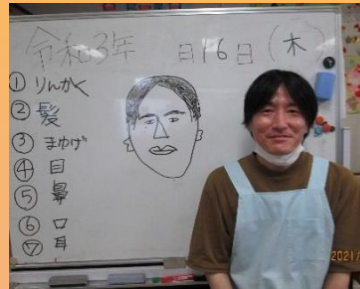 令和3年　日16日(木)
① りんかく
② 髪
③ まゆげ
④ 目
⑤ 鼻
⑥ 口
⑦ 耳
2021/